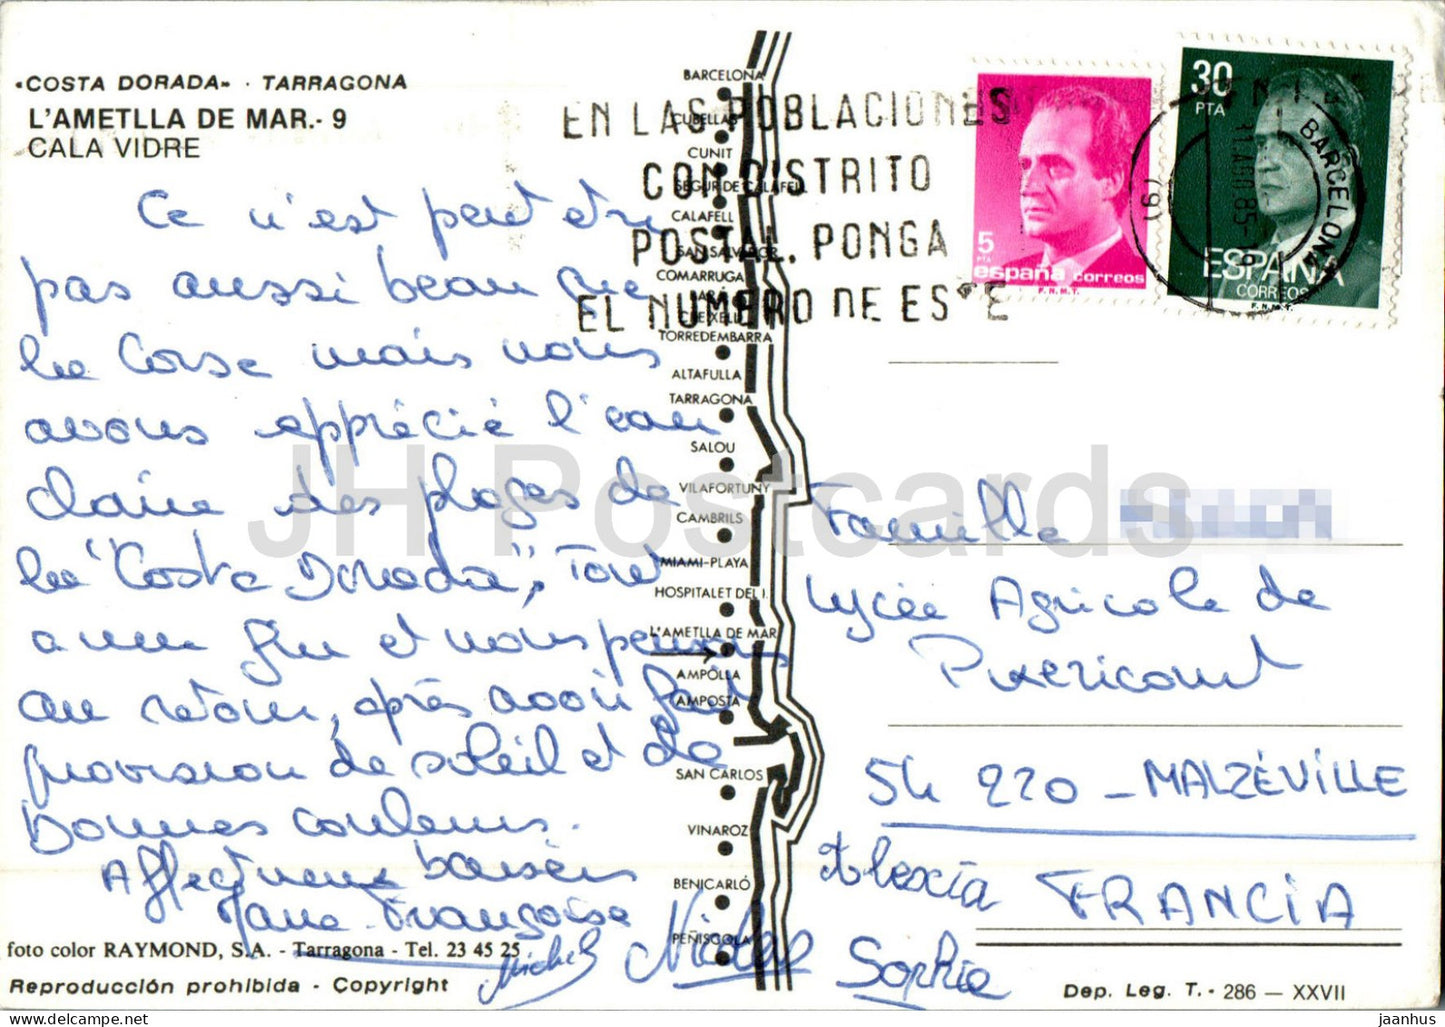 «COSTA DORADA» · TARRAGONA
L'AMETLLA DE MAR.- 9
CALA VIDRE
Ce n'est peut etre
pas aussi beau que
la Corse mais nous
avons apprécié l'eau
claire des plages de
la "Costa Dorada", Tout
a une fin et nous pensons
au retour, après avoir fait
provision de soleil et de
bonnes couleurs.
Affectueux baisers
Marie Françoise
Michel Nicolas Sophie
Alexia
foto color RAYMOND, S.A. - Tarragona - Tel. 23 45 25
Reproducción prohibida - Copyright
BARCELONA
CUBELLAS
CUNIT
SEGUR DE CALAFELL
CALAFELL
SAN SALVADOR
COMARRUGA
CREIXELL
TORREDEMBARRA
ALTAFULLA
TARRAGONA
SALOU
VILAFORTUNY
CAMBRILS
MIAMI-PLAYA
HOSPITALET DEL I.
L'AMETLLA DE MAR
AMPOLLA
AMPOSTA
SAN CARLOS
VINAROZ
BENICARLÓ
PEÑISCOLA
EN LAS POBLACIONES
CON DISTRITO
POSTAL. PONGA
EL NUMERO DE ESTE
5
PTA
españa correos
F.N.M.T.
30
PTA
ESPAÑA
CORREOS
F.N.M.T.
BARCELONA
(79)
Famille
Lycée Agricole de
Pixericourt
54 220 - MALZÉVILLE
FRANCIA
Dep. Leg. T. - 286 — XXVII
JH Postcards
jaanhus.myshopify.com